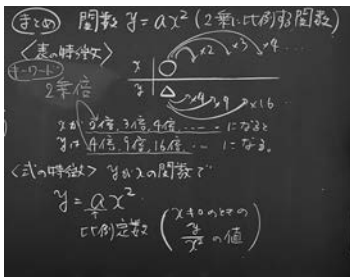 まとめ 関数 y=ax² (2乗に比例する関数)
〈表の特徴〉
キーワード
2乗倍
×2 ×3 ×4 ....
x ○
y △
×4 ×9 ×16 ...
xが 2倍, 3倍, 4倍, ..... になると
yは 4倍, 9倍, 16倍 ... になる。
〈式の特徴〉 yがxの関数で
y = ax²
比例定数 (x≠0のときの y/x² の値)